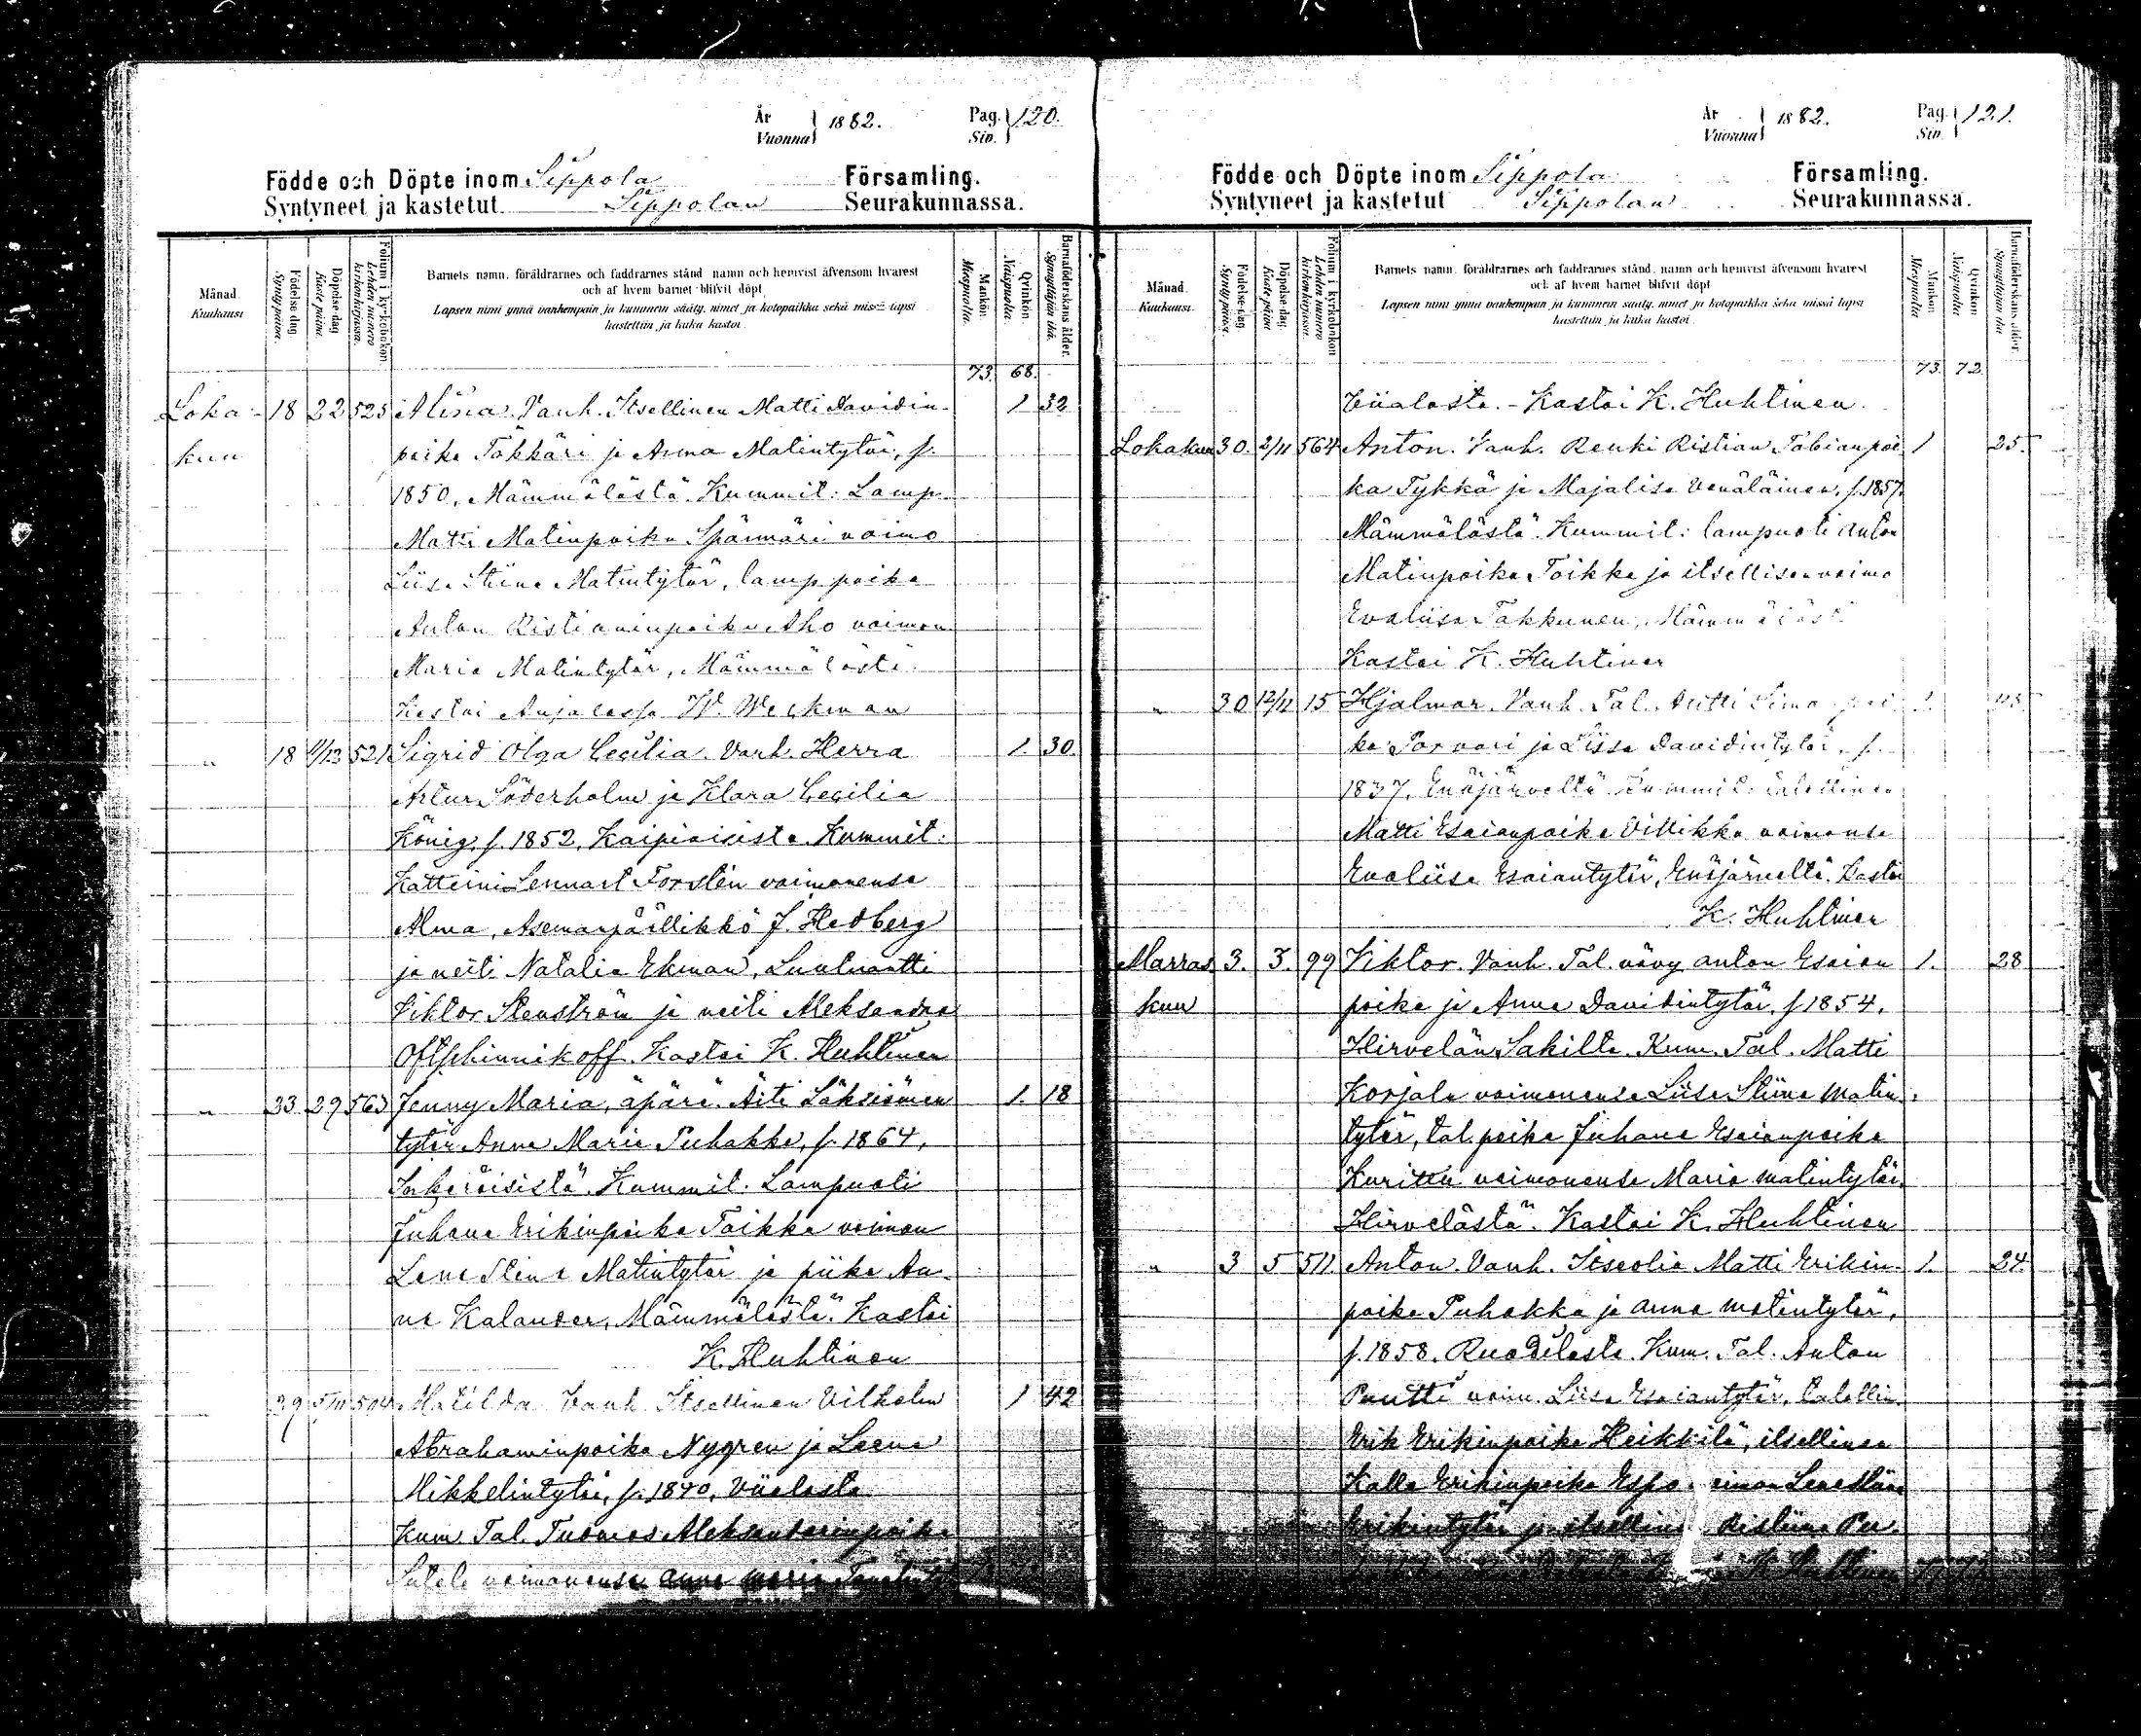 År
Vuonna } 1882.
Pag.
Siv. } 120.
Födde och Döpte inom Sippola Församling.
Syntyneet ja kastetut Sippolan Seurakunnassa.
Månad. Kuukausi.
Födelse-dag. Syntypäivä.
Döpelse-dag. Kaste päivä.
Folium i kyrkoboken. Lehden numero kirkonkirjassa.
Barnets namn, föräldrarnes och faddrarnes stånd, namn och hemvist äfvensom hvarest
och af hvem barnet blifvit döpt
Lapsen nimi ynnä vanhempain ja kummein sääty, nimet ja kotopaikka sekä missä lapsi
kastettiin ja kuka kastoi.
Mankön. Miespuolia.
Qvinkön. Naispuolia.
Barnaföderskans ålder. Synnyttäjän ikä.
73. 68.
Loka- 18 22 525 Alina. Vanh. Itsellinen Matti Davidin- 1 32
kuu poika Tökkäri ja Anna Matintytär, s.
1850, Mämmälästä. Kummit: Lamp.
Matti Matinpoika Spännäri vaimo
Liisa Stiina Matintytär, lamp. poika
Anton Ristianinpoika Aho vaimon
Maria Matintytär, Mämmälästä.
Kastoi Anjalassa W. Weckman
" 18 4/12 521 Sigrid Olga Cecilia. Vanh. Herra 1. 30.
Artur Söderholm ja Klara Cecilia
König, s. 1852, Kaipiaisista. Kummit:
Katteini Lennart Forstén vaimonensa
Alma, Asemanpäällikkö J. Hedberg
ja neiti Natalia Ekman, Luutnantti
Viktor Stenström ja neiti Aleksandra
Kastoi K. Huhtinen
" 23 29 563 Jenny Maria, äpärä. Äiti Itsellismien 1. 18
tytär Anna Maria Puhakka, s. 1864,
Inkeroisista. Kummit. Lampuoti
Juhana Erikinpoika Toikka vaimon
Lena Stina Matintytär ja piika An-
na Kalander, Mämmälästä. Kastoi
K. Huhtinen
29 5/11 504 Matilda Vanh. Itsellinen Vilhelm 1 42
Abrahaminpoika Nygren ja Leena
Mikkelintytär, s. 1840, Viialasta
Kum. Tal. Tuomas Aleksanterinpoika
vaimonensa Anna Maria
År
Vuonna } 1882.
Pag.
Siv. } 121.
Födde och Döpte inom Sippola Församling.
Syntyneet ja kastetut Sippolan Seurakunnassa.
Månad. Kuukausi.
Födelse-dag. Syntypäivä.
Döpelse-dag. Kaste päivä.
Folium i kyrkoboken. Lehden numero kirkonkirjassa.
Barnets namn, föräldrarnes och faddrarnes stånd, namn och hemvist äfvensom hvarest
och af hvem barnet blifvit döpt
Lapsen nimi ynnä vanhempain ja kummein sääty, nimet ja kotopaikka sekä missä lapsi
kastettiin ja kuka kastoi.
Mankön. Miespuolia.
Qvinkön. Naispuolia.
Barnaföderskans ålder. Synnyttäjän ikä.
73. 72.
Viialasta. - Kastoi K. Huhtinen.
Lokakuu 30. 2/11 564 Anton. Vanh. Renki Ristian Tobianpoi 1 25.
ka Tykkä ja Majalisa Venäläinen, s. 1857,
Mämmälästä. Kummit: lampuoti Anton
Matinpoika Toikka ja itsellisen vaimo
Evaliisa Takkunen, Mämmälästä
Kastoi K. Huhtinen
" 30 12/11 15 Hjalmar. Vanh. Tal. Antti Simonpoi 1.
ka Porvari ja Liisa Davidintytär, s.
1837, Enäjärveltä. Kummit: talollinen
Matti Esaianpoika Villikka vaimonsa
Evaliisa Esaiantytär, Enäjärveltä. Kastoi
K. Huhtinen
Marras 3. 3. 99 Viktor. Vanh. Tal. vävy Anton Esaian 1. 28
kuu poika ja Anna Davidintytär, s 1854,
Hirvelän Sakilta. Kum. Tal. Matti
Korjala vaimonensa Liisa Stiina Matin
tytär, tal. poika Juhana Esaianpoika
Kurittu vaimonensa Maria Matintytär
Hirvelästä. Kastoi K. Huhtinen
" 3 5 511. Anton. Vanh. Itseolia Matti Erikin- 1. 24.
poika Puhakka ja Anna Matintytär,
s. 1858. Ruotilasta. Kum. Tal. Anton
Puutti vaim. Liisa Esaiantytär, talollin.
Erik Erikinpoika Heikkilä, itsellinen
Kalle Erikinpoika
Erikintytär ja itsellinen Ristiina Pu
K Huhtinen